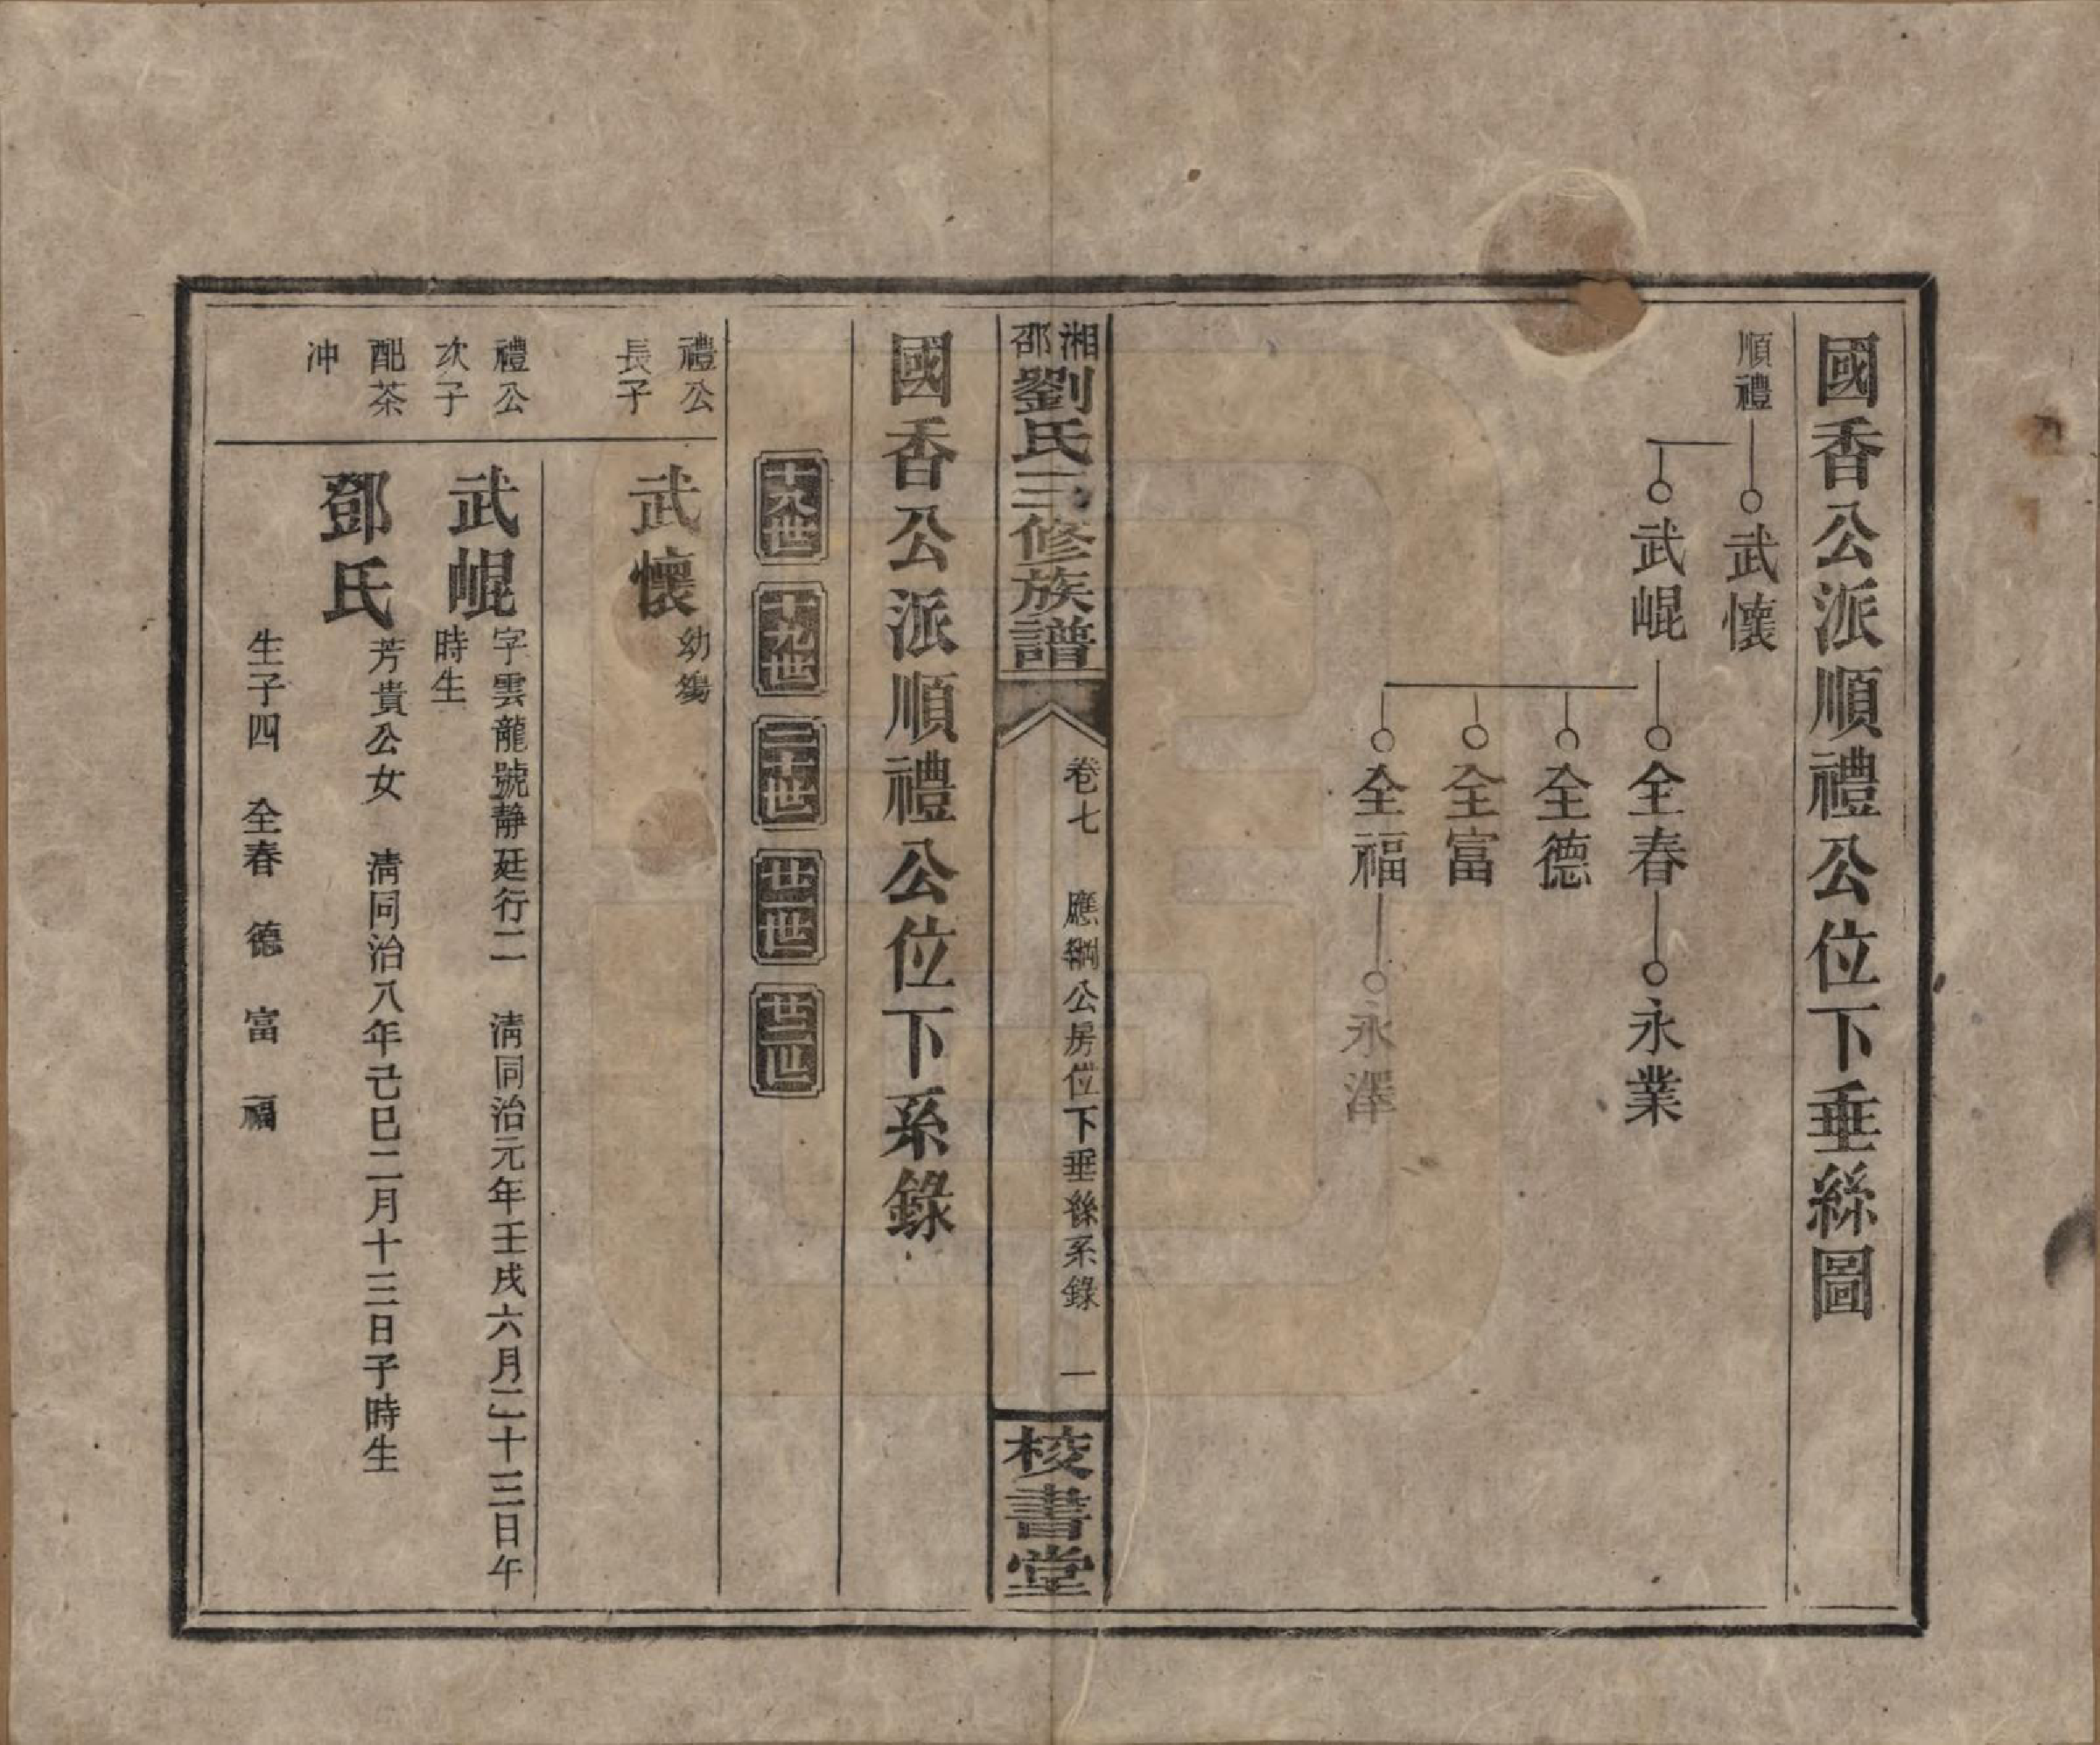 國香公派順禮公位下垂絲圖
順禮
武懷
武崐
全春
全德
全富
全福
永業
永澤
湘邵劉氏三修族譜
卷七 應綱公房位下垂絲系錄 一
校書堂
國香公派順禮公位下系錄
十八世 十九世 二十世 廿一世 廿二世
禮公
長子
武懷
幼殤
禮公
次子
武崐
字雲龍號靜廷行二 清同治元年壬戌六月二十三日午
時生
配茶
冲
鄧氏
芳貴公女 清同治八年己巳二月十三日子時生
生子四 全春 德 富 福